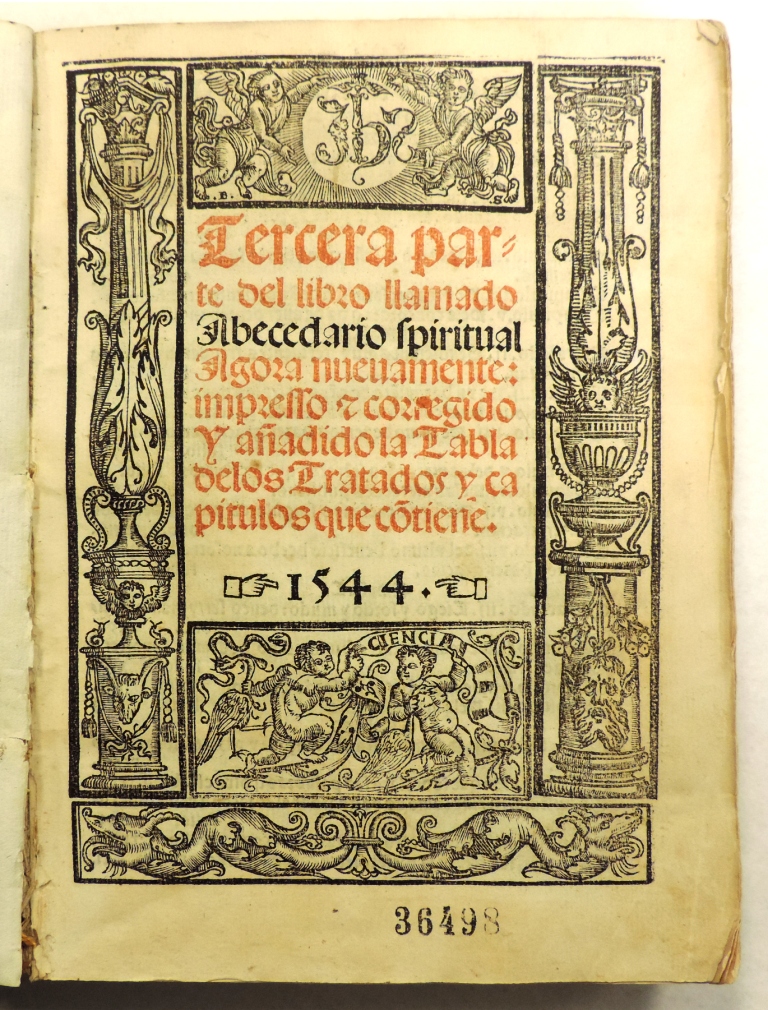 Jhs
.B. S
Tercera par⸗
te del libro llamado
Abecedario spiritual
Agora nueuamente:
impresso ⁊ corregido
Y añadido la Tabla
delos Tratados y ca
pitulos que cõtiene.
☞1544.☜
CIENCIA
36498